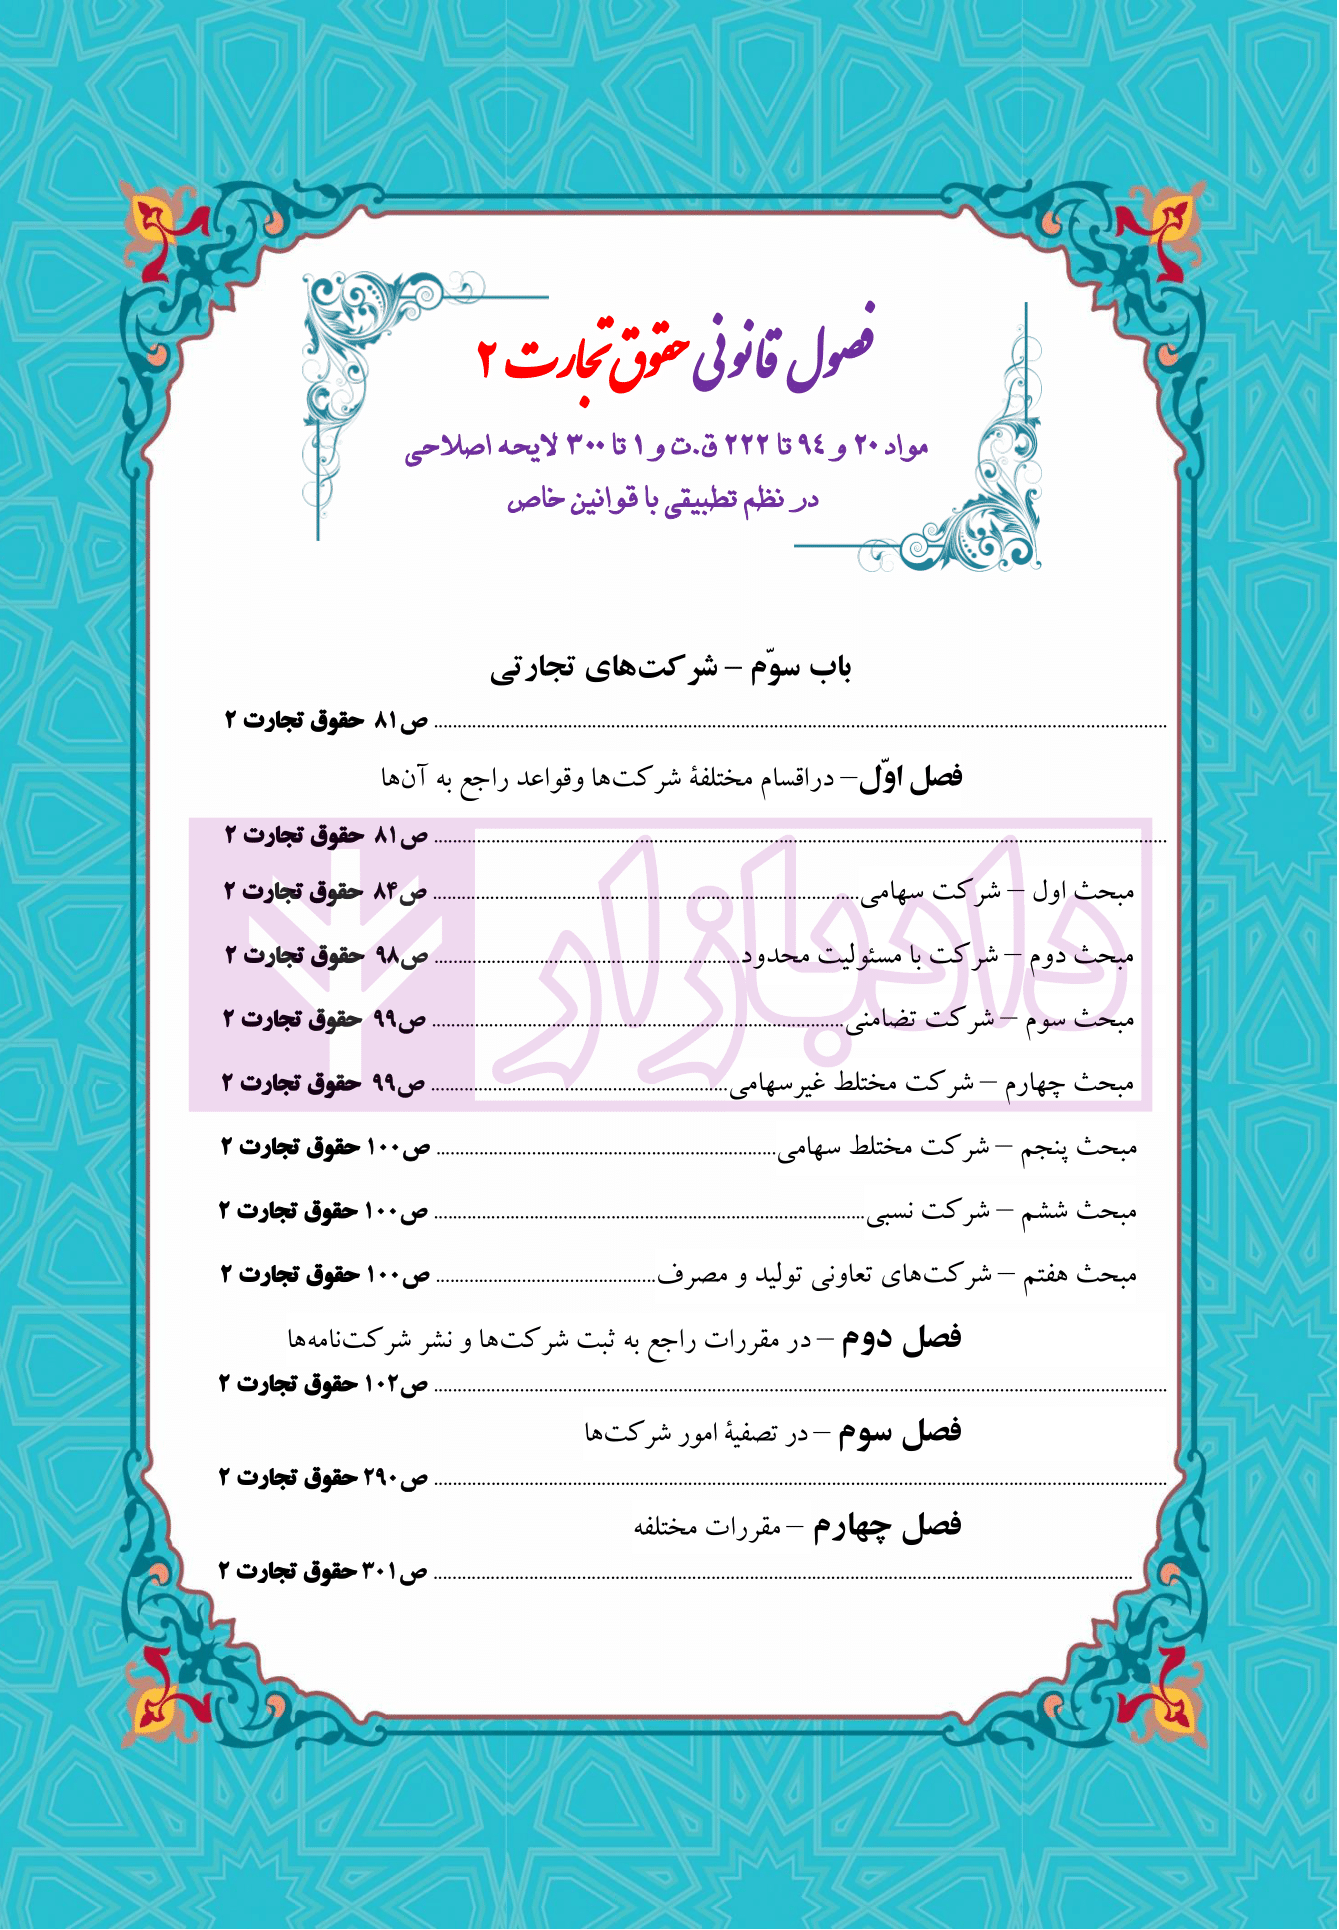 فصول قانونی حقوق تجارت ۲
مواد ۲۰ و ۹۴ تا ۲۲۲ ق.ت و ۱ تا ۳۰۰ لایحه اصلاحی
در نظم تطبیقی با قوانین خاص
باب سوّم – شرکت‌های تجارتی
........................ ص۸۱ حقوق تجارت ۲
فصل اوّل– دراقسام مختلفهٔ شرکت‌ها وقواعد راجع به آن‌ها
........................ ص۸۱ حقوق تجارت ۲
مبحث اول – شرکت سهامی........................ ص۸۴ حقوق تجارت ۲
مبحث دوم – شرکت با مسئولیت محدود........................ ص۹۸ حقوق تجارت ۲
مبحث سوم – شرکت تضامنی........................ ص۹۹ حقوق تجارت ۲
مبحث چهارم – شرکت مختلط غیرسهامی........................ ص۹۹ حقوق تجارت ۲
مبحث پنجم – شرکت مختلط سهامی........................ ص۱۰۰ حقوق تجارت ۲
مبحث ششم – شرکت نسبی........................ ص۱۰۰ حقوق تجارت ۲
مبحث هفتم – شرکت‌های تعاونی تولید و مصرف........................ ص۱۰۰ حقوق تجارت ۲
فصل دوم – در مقررات راجع به ثبت شرکت‌ها و نشر شرکت‌نامه‌ها
........................ ص۱۰۲ حقوق تجارت ۲
فصل سوم – در تصفیهٔ امور شرکت‌ها
........................ ص۲۹۰ حقوق تجارت ۲
فصل چهارم – مقررات مختلفه
........................ ص۳۰۱ حقوق تجارت ۲
دادبازار